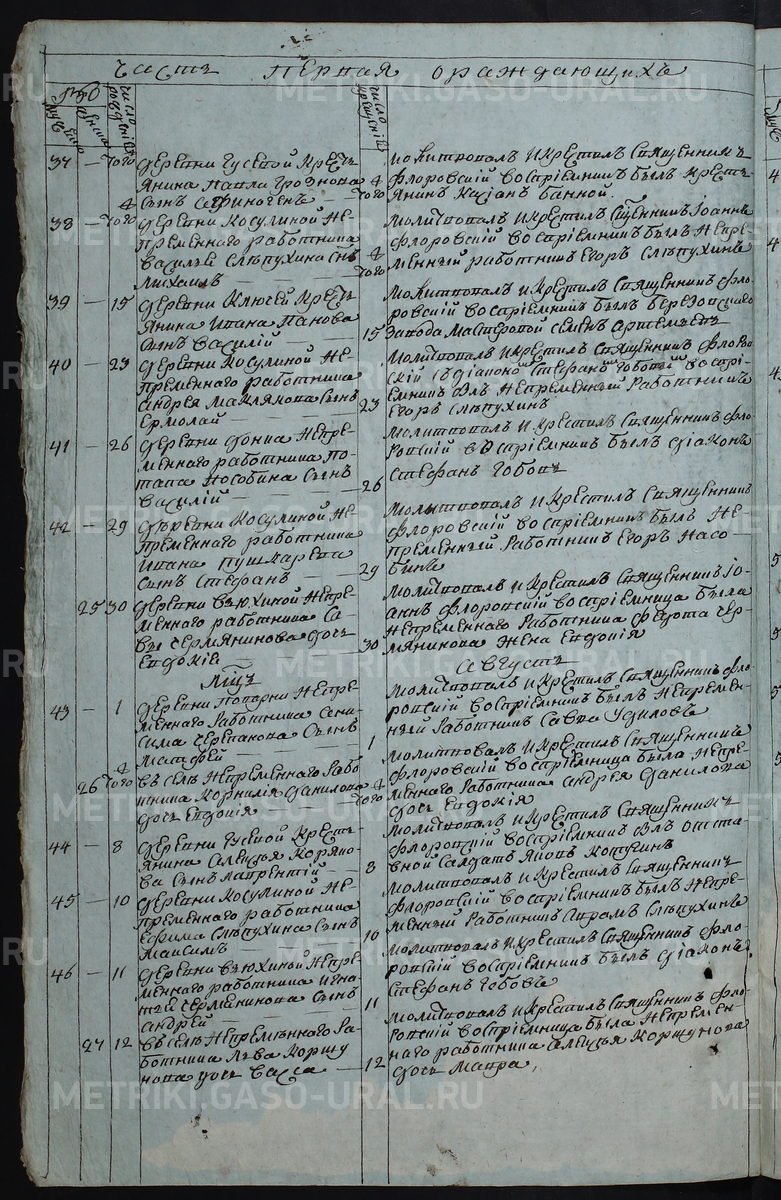 часть первая о раждающихъ
число рожденія
число крещенія
37 — того деревни Гусевой крестья
янина Павла Грознова
4 сынъ Афиногенъ
молитвовалъ и крестилъ священникъ
4 Флоровскій воспріемникъ былъ крестья
того янинъ Касіанъ Банной.
38 — того деревни Косулиной не
пременнаго работника
Василья Слѣпухина сынъ
Михаилъ
молитвовалъ и крестилъ священникъ Іоаннъ
4 Флоровскій воспріемникъ былъ непре
того менный работникъ Егоръ Слѣпухинъ
39 — 15 деревни Ключей крестья
янина Ивана Панова
сынъ Василій
молитвовалъ и крестилъ священникъ Фло
ровскій воспріемникъ былъ Березовскаго
15 завода мастеровой
40 — 23 деревни Косулиной не
пременнаго работника
Андрея сынъ
Ермолай
молитвовалъ и крестилъ священникъ Флоров
скій съ діакономъ Стефаномъ Гобовымъ воспрі
емникъ былъ непременный работникъ
23 Егоръ Слѣпухинъ
41 — 26 деревни непре
меннаго работника По
тапа Нособина сынъ
Василій
молитвовалъ и крестилъ священникъ Фло
ровскій воспріемникъ былъ діаконъ
Стефанъ Гобовъ
26
42 — 29 деревни Косулиной не
пременнаго работника
Ивана Пушкарева
сынъ Стефанъ
молитвовалъ и крестилъ священникъ
Флоровскій воспріемникъ былъ не
пременный работникъ Егоръ Насо
29 бинъ
25 30 деревни Вьюхиной непре
меннаго работника Са
вы Чермянинова дочь
Евдокіе
молитвовалъ и крестилъ священникъ Іо
аннъ Флоровскій воспріемница была
непременнаго работника Федота Чер
30 мянинова жена Евдокія
августъ
43 — 1 деревни Поварни непре
меннаго работника
сима Черепанова сынъ
Матфей
молитвовалъ и крестилъ священникъ Фло
ровскій воспріемникъ былъ непремен
ный работникъ Савва
1
26 4 того въ селѣ непременнаго рабо
тника Корнилія Данилова
дочь Евдокія
молитвовалъ и крестилъ священникъ
Флоровскій воспріемница была непре
4 меннаго работника Андрея Данилова
того дочь Евдокія
44 — 8 деревни Гусевой кресть
янина Алексѣя Коряко
ва сынъ Лаврентій
молитвовалъ и крестилъ священникъ
Флоровскій воспріемникъ былъ отста
8 вной салдатъ Яковъ
45 — 10 деревни Косулиной не
пременнаго работника
Ефима Слѣпухина сынъ
Максимъ
молитвовалъ и крестилъ священникъ
Флоровскій воспріемникъ былъ непре
менный работникъ Слѣпухинъ
10
46 — 11 деревни Вьюхиной непре
меннаго работника Игна
тія Чермянинова сынъ
Андрей
молитвовалъ и крестилъ священникъ Фло
ровскій воспріемникъ былъ діаконъ
Стефанъ Гобовъ
11
27 12 въ селѣ непременнаго ра
ботника Льва Коршу
нова дочь Васса
молитвовалъ и крестилъ священникъ Фло
ровскій воспріемница была непремен
наго работника Алексѣя Коршунова
12 дочь Мавра,
METRIKI.GASO-URAL.RU